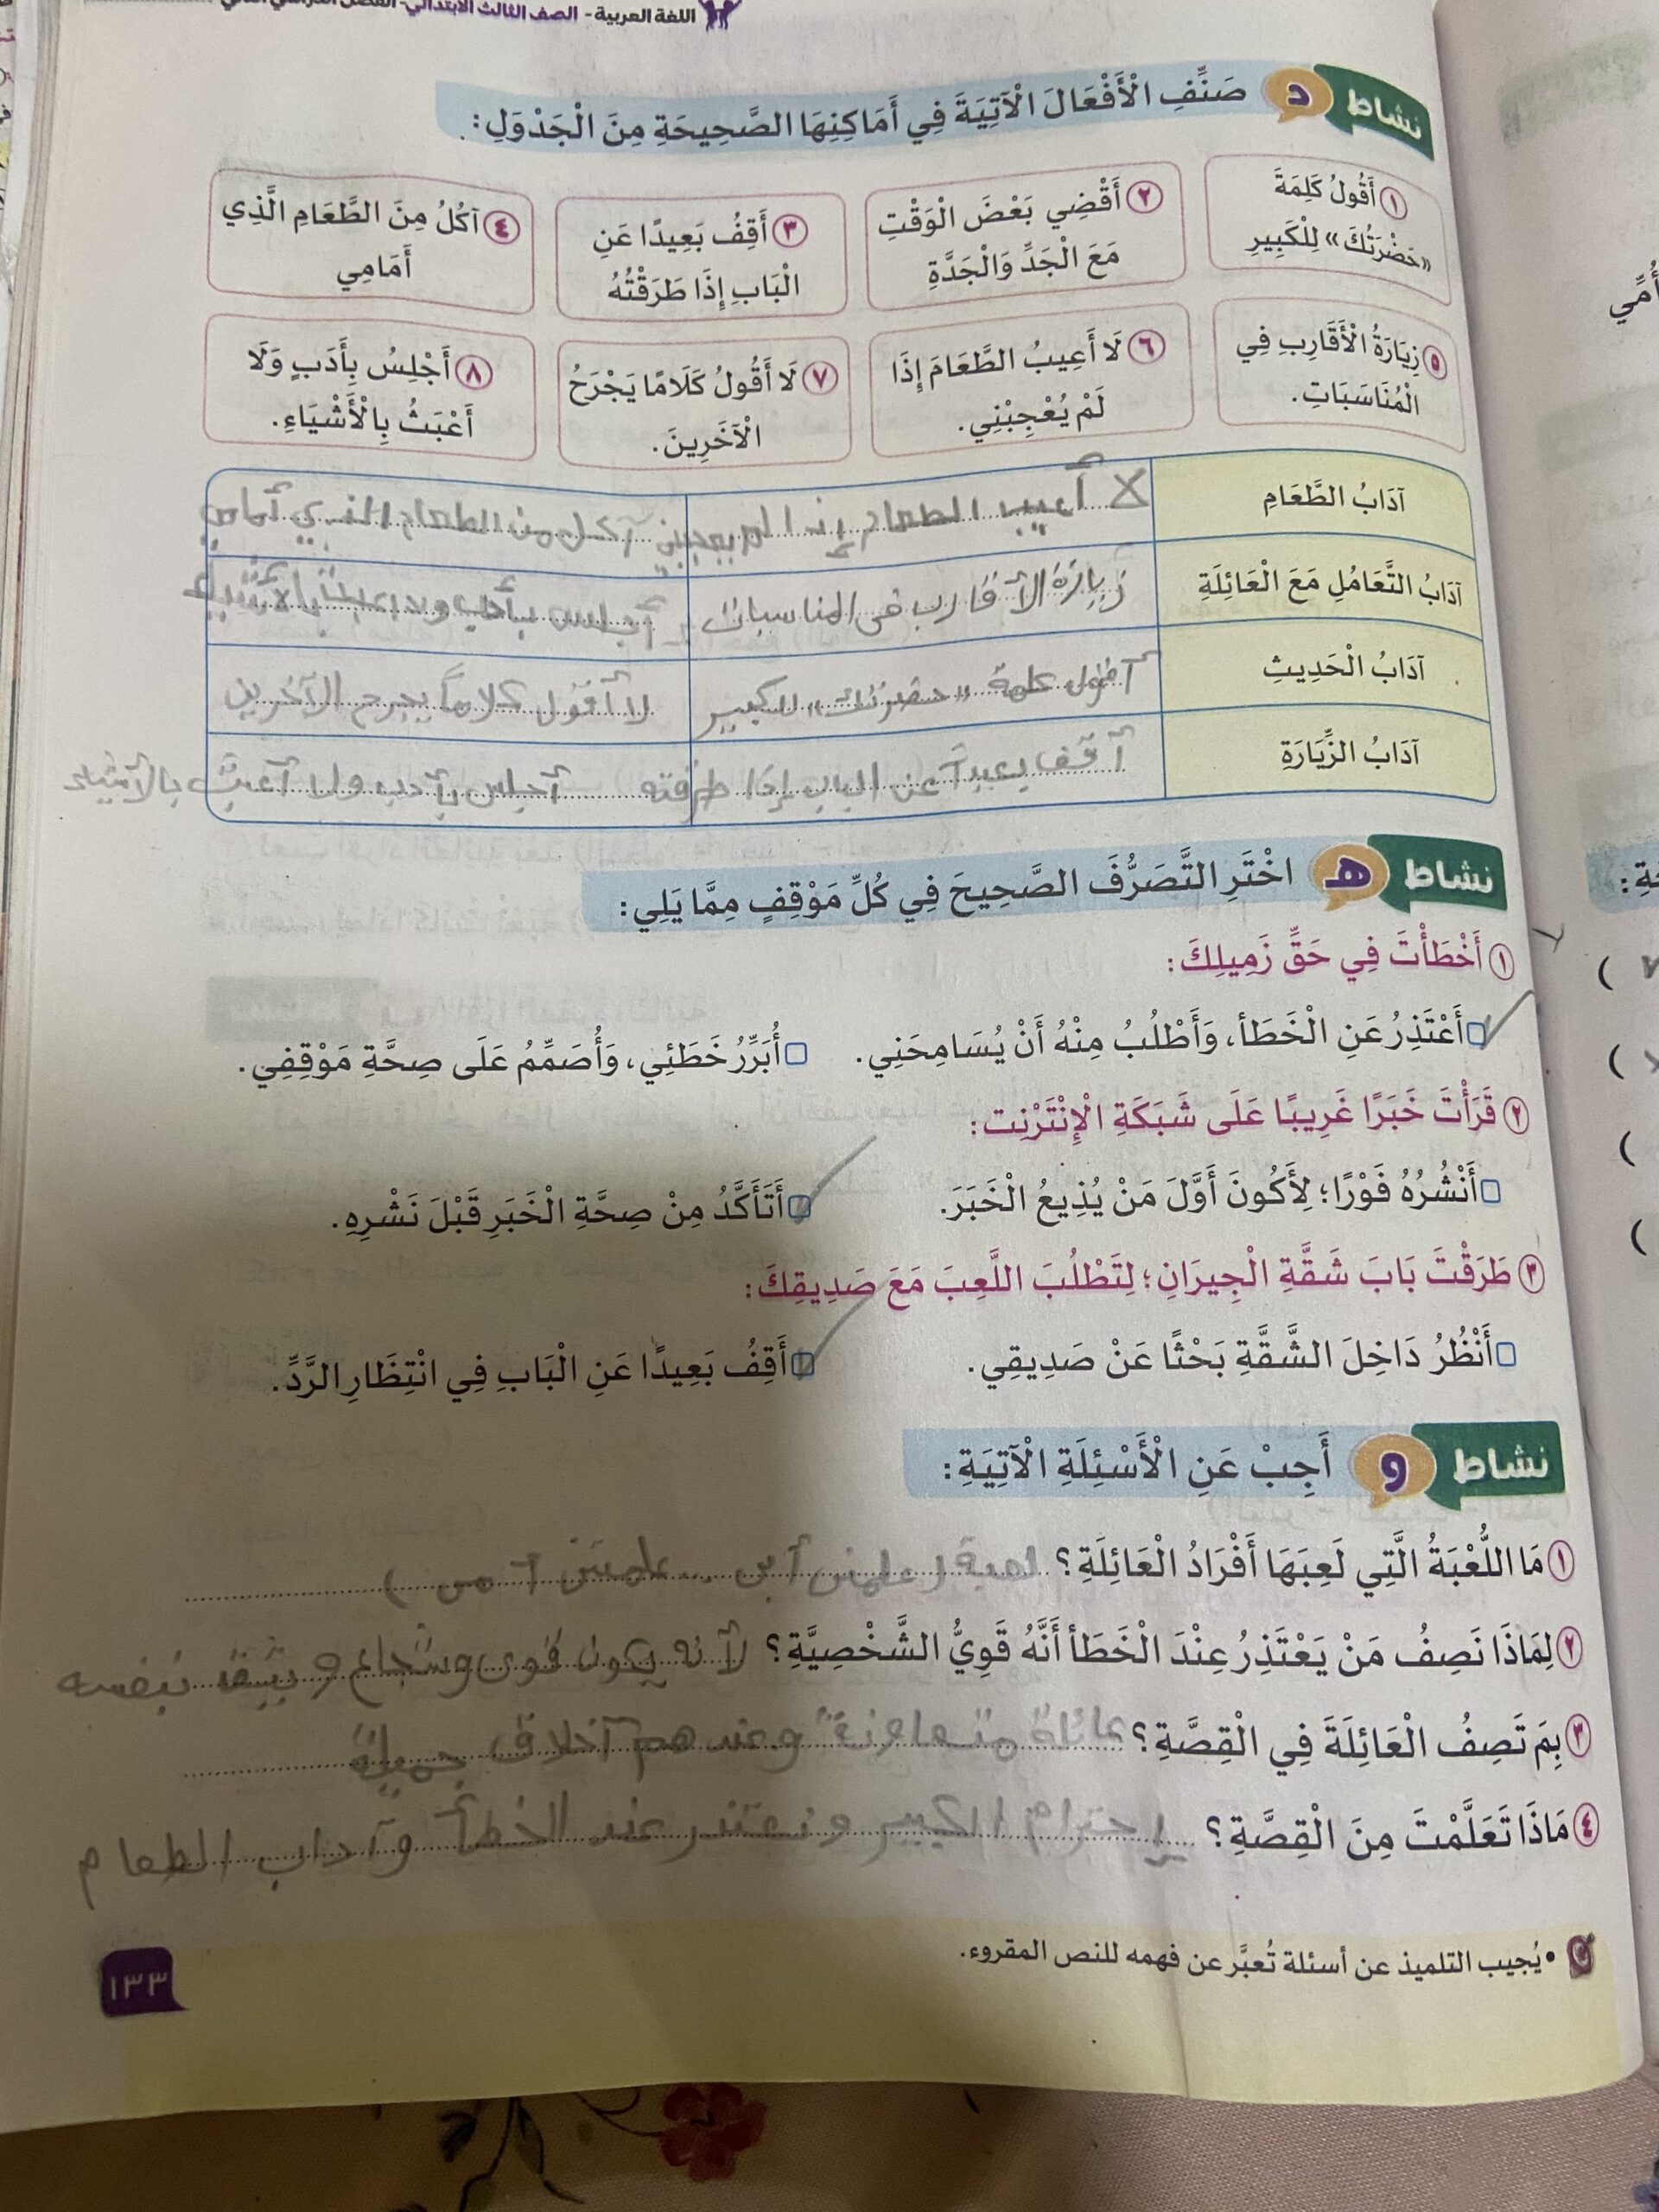 اللغة العربية - الصف الثالث الابتدائي - الفصل الدراسي الثاني
نشاط د صَنِّفِ الْأَفْعَالَ الْآتِيَةَ فِي أَمَاكِنِهَا الصَّحِيحَةِ مِنَ الْجَدْوَلِ:
١ أَقُولُ كَلِمَةَ
«حَضْرَتُكَ» لِلْكَبِيرِ
٢ أَقْضِي بَعْضَ الْوَقْتِ
مَعَ الْجَدِّ وَالْجَدَّةِ
٣ أَقِفُ بَعِيدًا عَنِ
الْبَابِ إِذَا طَرَقْتُهُ
٤ آكُلُ مِنَ الطَّعَامِ الَّذِي
أَمَامِي
٥ زِيَارَةُ الْأَقَارِبِ فِي
الْمُنَاسَبَاتِ.
٦ لَا أَعِيبُ الطَّعَامَ إِذَا
لَمْ يُعْجِبْنِي.
٧ لَا أَقُولُ كَلَامًا يَجْرَحُ
الْآخَرِينَ.
٨ أَجْلِسُ بِأَدَبٍ وَلَا
أَعْبَثُ بِالْأَشْيَاءِ.
آدَابُ الطَّعَامِ لا أعيب الطعام إذا لم يعجبني آكل من الطعام الذي أمامي
آدَابُ التَّعَامُلِ مَعَ الْعَائِلَةِ زيارة الأقارب في المناسبات أجلس بأدب
آدَابُ الْحَدِيثِ أقول كلمة «حضرتك» للكبير لا أقول كلاماً يجرح الآخرين
آدَابُ الزِّيَارَةِ أقف بعيداً عن الباب إذا طرقته أجلس بأدب ولا أعبث بالأشياء
نشاط هـ اخْتَرِ التَّصَرُّفَ الصَّحِيحَ فِي كُلِّ مَوْقِفٍ مِمَّا يَلِي:
١ أَخْطَأْتَ فِي حَقِّ زَمِيلِكَ:
أَعْتَذِرُ عَنِ الْخَطَأ، وَأَطْلُبُ مِنْهُ أَنْ يُسَامِحَنِي. أُبَرِّرُ خَطَئِي، وَأُصَمِّمُ عَلَى صِحَّةِ مَوْقِفِي.
٢ قَرَأْتَ خَبَرًا غَرِيبًا عَلَى شَبَكَةِ الْإِنْتَرْنِت:
أَنْشُرُهُ فَوْرًا؛ لِأَكُونَ أَوَّلَ مَنْ يُذِيعُ الْخَبَرَ. أَتَأَكَّدُ مِنْ صِحَّةِ الْخَبَرِ قَبْلَ نَشْرِهِ.
٣ طَرَقْتَ بَابَ شَقَّةِ الْجِيرَانِ؛ لِتَطْلُبَ اللَّعِبَ مَعَ صَدِيقِكَ:
أَنْظُرُ دَاخِلَ الشَّقَّةِ بَحْثًا عَنْ صَدِيقِي. أَقِفُ بَعِيدًا عَنِ الْبَابِ فِي انْتِظَارِ الرَّدِّ.
نشاط و أَجِبْ عَنِ الْأَسْئِلَةِ الْآتِيَةِ:
١ مَا اللُّعْبَةُ الَّتِي لَعِبَهَا أَفْرَادُ الْعَائِلَةِ؟ لعبة (علمني أبي ... علمتني أمي)
٢ لِمَاذَا نَصِفُ مَنْ يَعْتَذِرُ عِنْدَ الْخَطَأ أَنَّهُ قَوِيُّ الشَّخْصِيَّةِ؟ لأنه يكون قوى وشجاع و يثق بنفسه
٣ بِمَ تَصِفُ الْعَائِلَةَ فِي الْقِصَّةِ؟ عائلة متعاونة وعندهم أخلاق جميلة
٤ مَاذَا تَعَلَّمْتَ مِنَ الْقِصَّةِ؟ إحترام الكبير و نعتذر عند الخطأ وآداب الطعام
• يُجيب التلميذ عن أسئلة تُعبَّر عن فهمه للنص المقروء.
١٣٣
أُمِّي